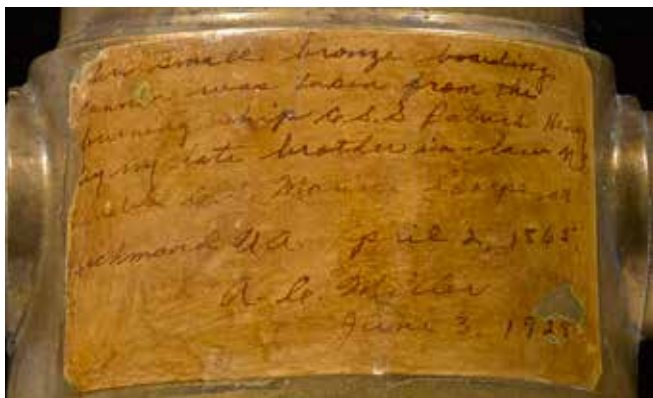 small bronze boarding
cannon was taken from the
burning ship C.S.S Patrick Henry
by my late brother in-law
Marine Corps, at
Richmond VA. April 2, 1865.
A. C. Miller
June 3, 1928